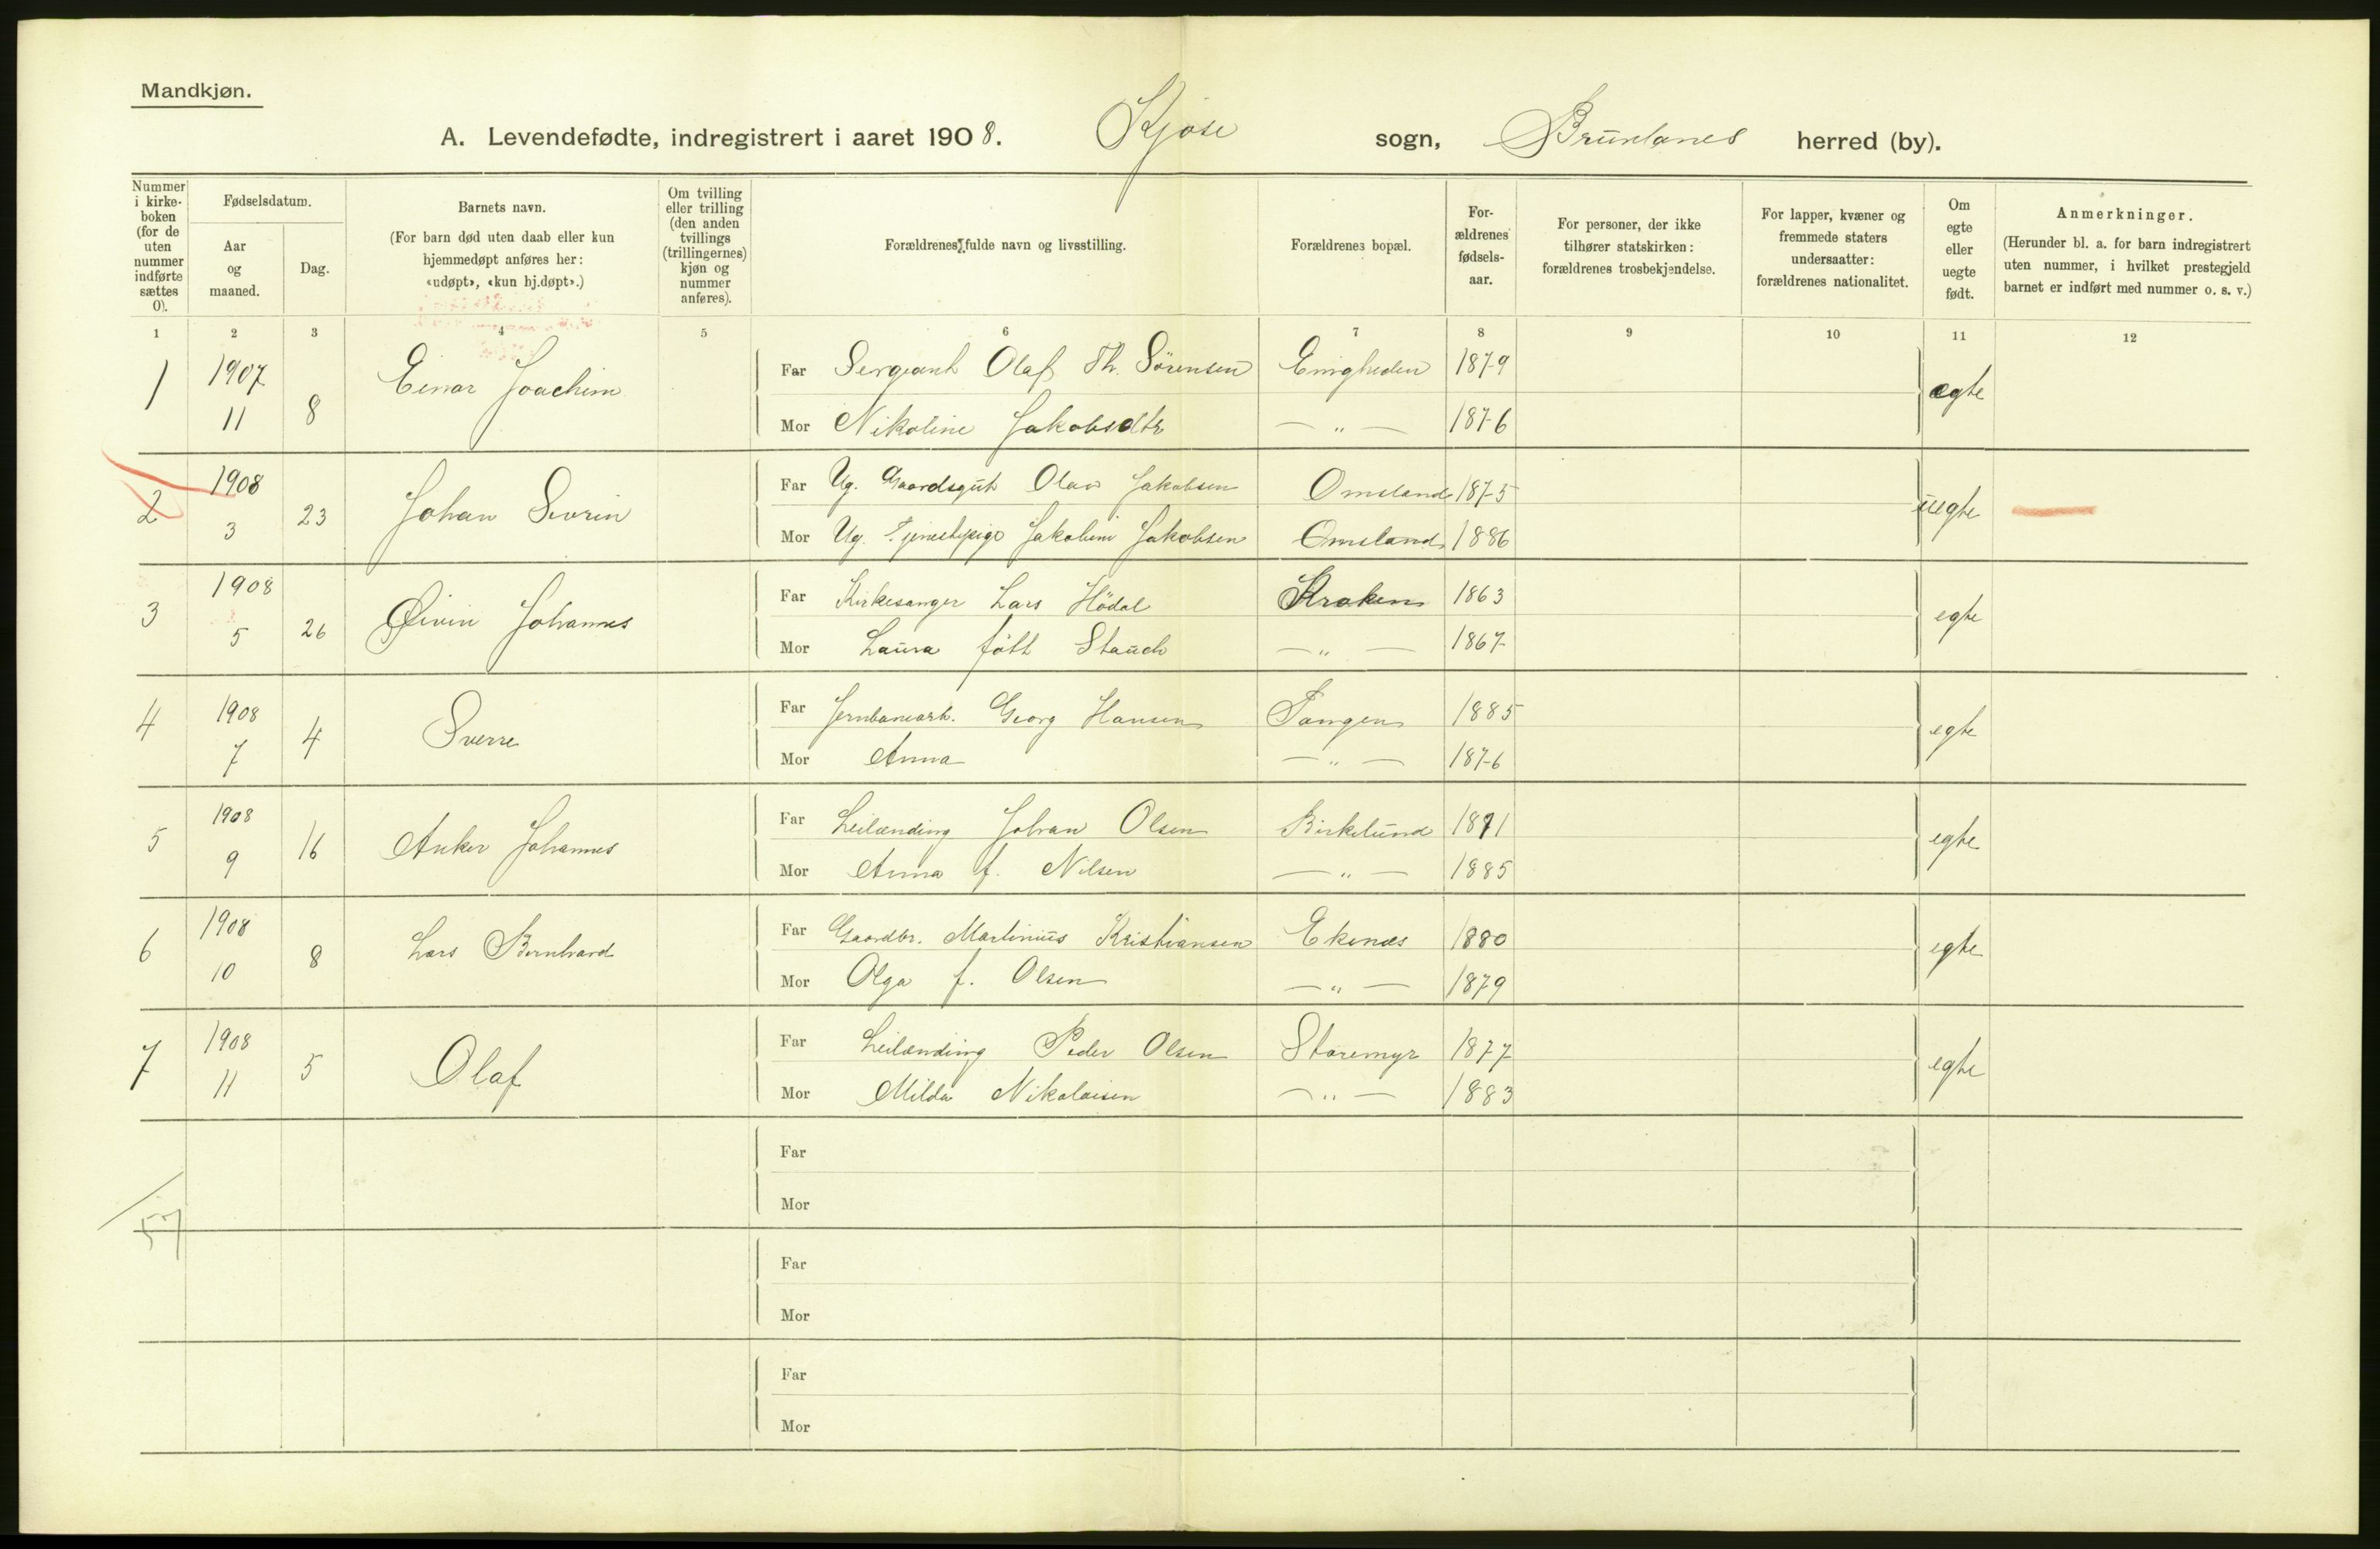 Mandkjøn.
A. Levendefødte, indregistrert i aaret 1908. Kjose sogn, Brunlanes herred (by).
Nummer i kirke-boken (for de uten nummer indførte sættes 0).
Fødselsdatum.
Aar og maaned.
Dag.
Barnets navn.
(For barn død uten daab eller kun hjemmedøpt anføres her: «udøpt», «kun hj.døpt».)
Om tvilling eller trilling (den anden tvillings (trillingernes) kjøn og nummer anføres).
Forældrenes fulde navn og livsstilling.
Forældrenes bopæl.
For-ældrenes fødsels-aar.
For personer, der ikke tilhører statskirken: forældrenes trosbekjendelse.
For lapper, kvæner og fremmede staters undersaatter: forældrenes nationalitet.
Om egte eller uegte født.
Anmerkninger.
(Herunder bl. a. for barn indregistrert uten nummer, i hvilket prestegjeld barnet er indført med nummer o. s. v.)
1 2 3 4 5 6 7 8 9 10 11 12
1 1907 11 8 Einar Joachim Far Sergeant Olaf Th. Sørensen Enigheden 1879 egte
Mor Nikoline Jakobsdtr — " — 1876
2 1908 3 23 Johan Sevrin Far Ug. Gaardsgut Olav Jakobsen Omsland 1875 uegte
Mor Ug. Tjenestepige Jakobine Jakobsen Omsland 1886
3 1908 5 26 Øivin Johannes Far Kirkesanger Lars Hödal Kraken 1863 egte
Mor Laura fött Stauch — " — 1867
4 1908 7 4 Sverre Far Jernbanearb. Georg Hansen Tangen 1885 egte
Mor Anna — " — 1876
5 1908 9 16 Anker Johannes Far Leilænding Johan Olsen Birkelund 1871 egte
Mor Anna f. Nilsen — " — 1885
6 1908 10 8 Lars Bernhard Far Gaardbr. Martinius Kristiansen Ekenæs 1880 egte
Mor Olga f. Olsen — " — 1879
7 1908 11 5 Olaf Far Leilænding Peder Olsen Storemyr 1877 egte
Mor Milda Nikolaisen — " — 1883
Far
Mor
57
Far
Mor
Far
Mor